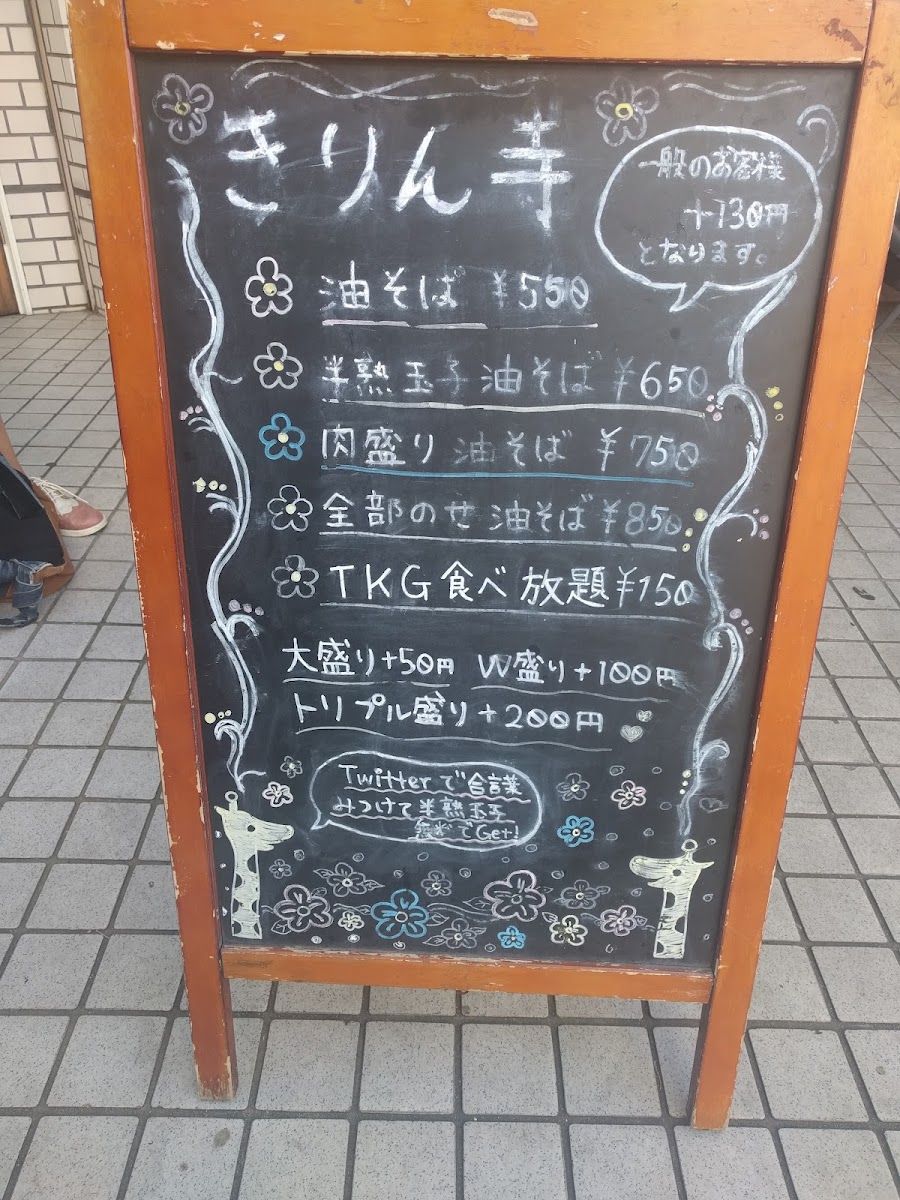 きりん寺
一般のお客様
+130円
となります。
油そば ¥550
半熟玉子 油そば ¥650
肉盛り 油そば ¥750
全部のせ 油そば ¥850
TKG食べ放題 ¥150
大盛り+50円 W盛り+100円
トリプル盛り+200円
Twitterで合言葉
みつけて半熟玉子
無料でGet!